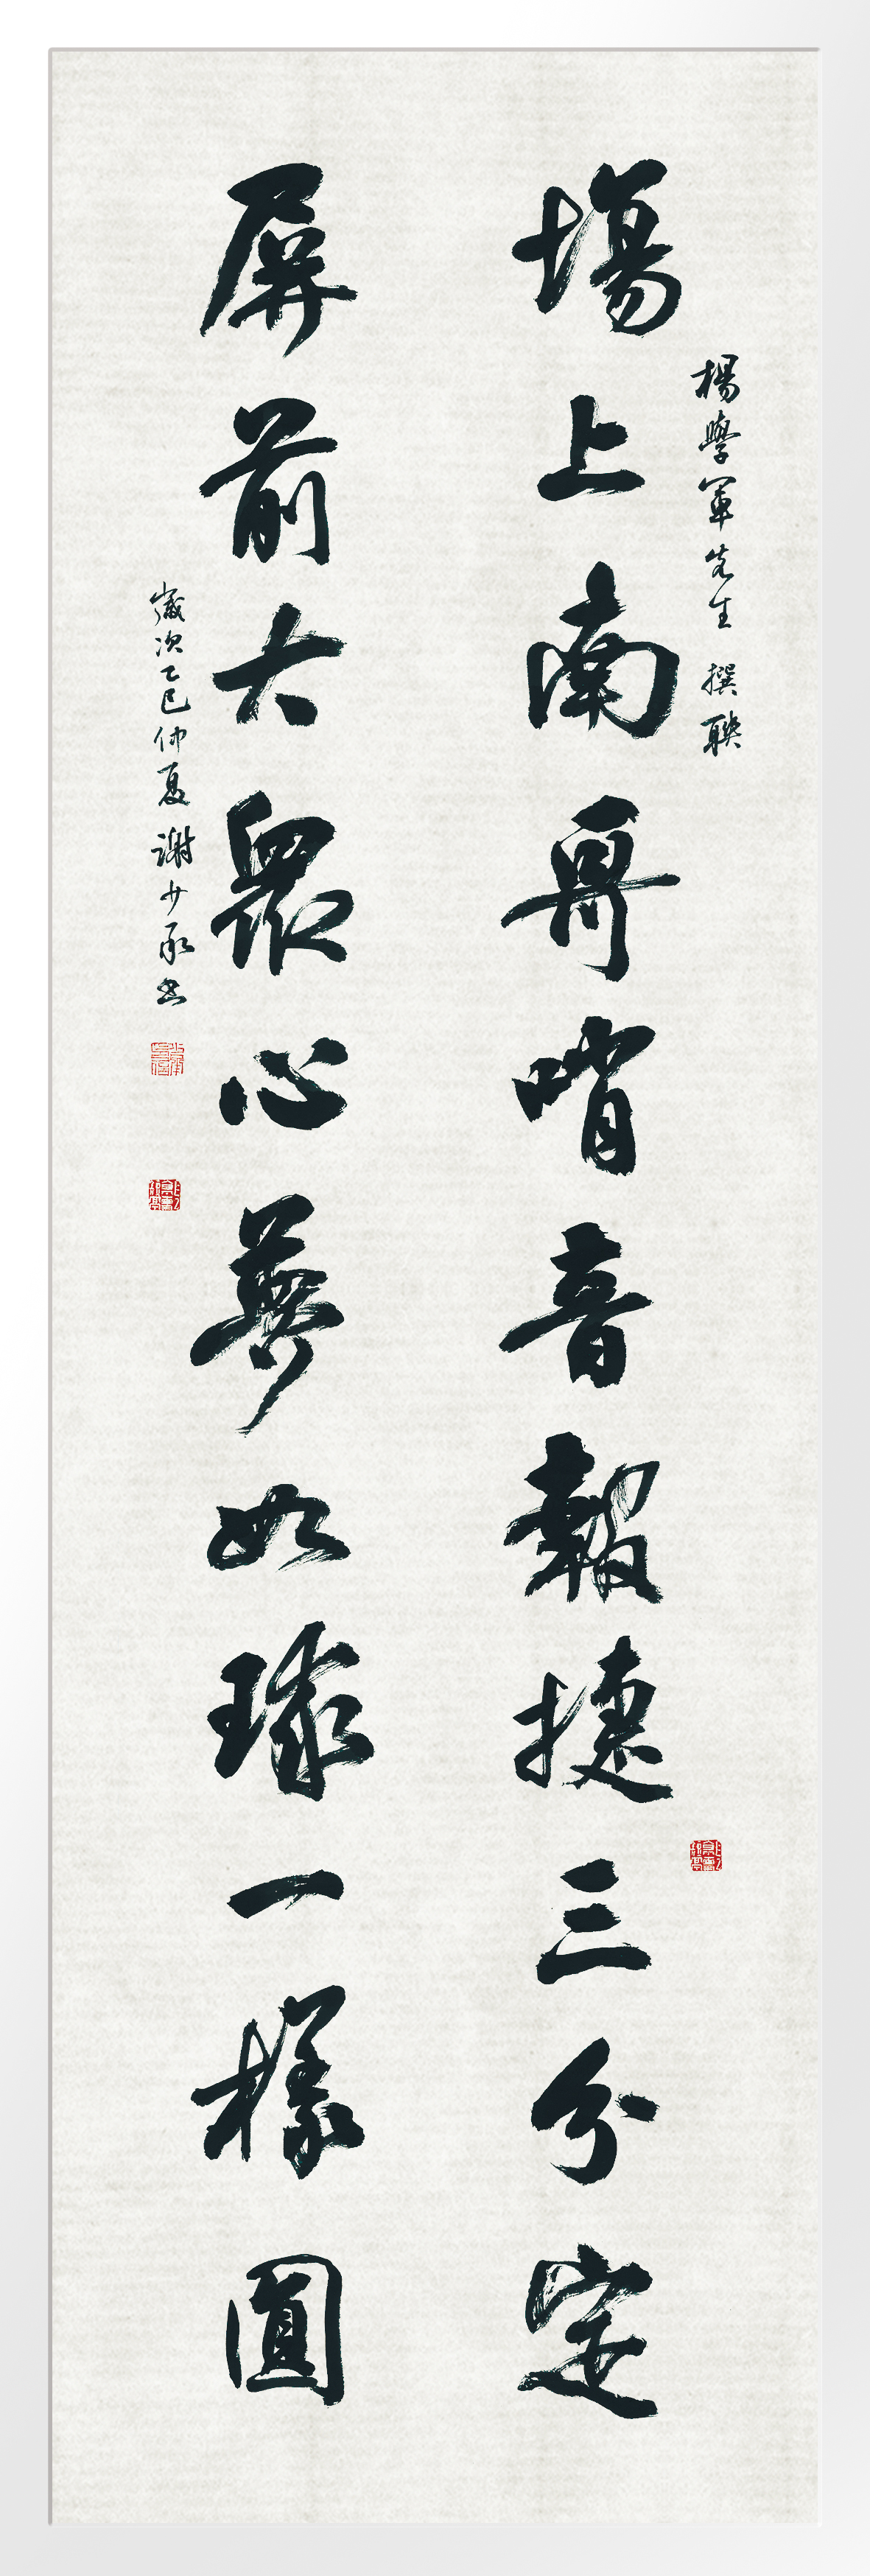 楊學軍先生 撰聯
塲上南哥哨音報捷三分定
屏前大眾心夢如球一樣圓
歲次乙巳仲夏 謝少承書